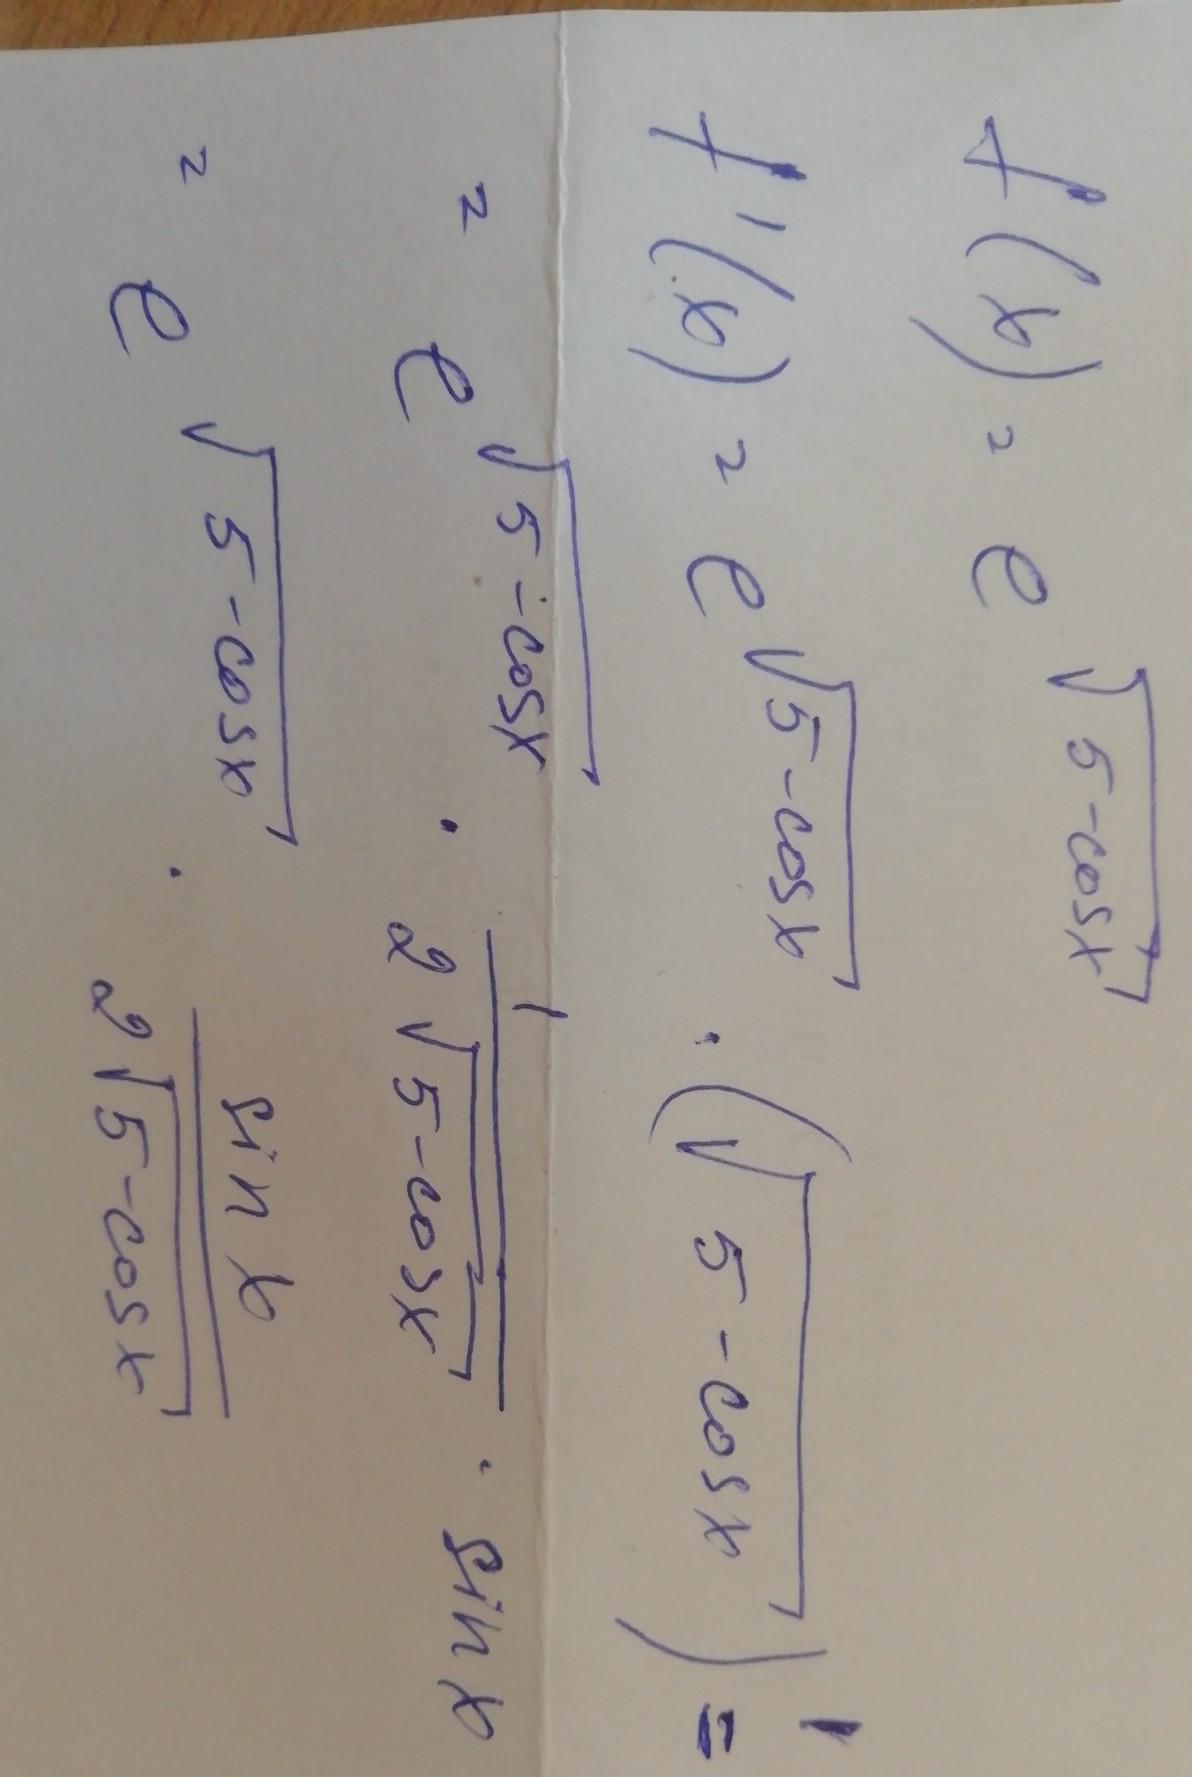 f(x) = e^√(5-cosx)
f'(x) = e^√(5-cosx) · (√(5-cosx))' =
= e^√(5-cosx) · 1/(2√(5-cosx)) · sinx
= e^√(5-cosx) · sinx/(2√(5-cosx))